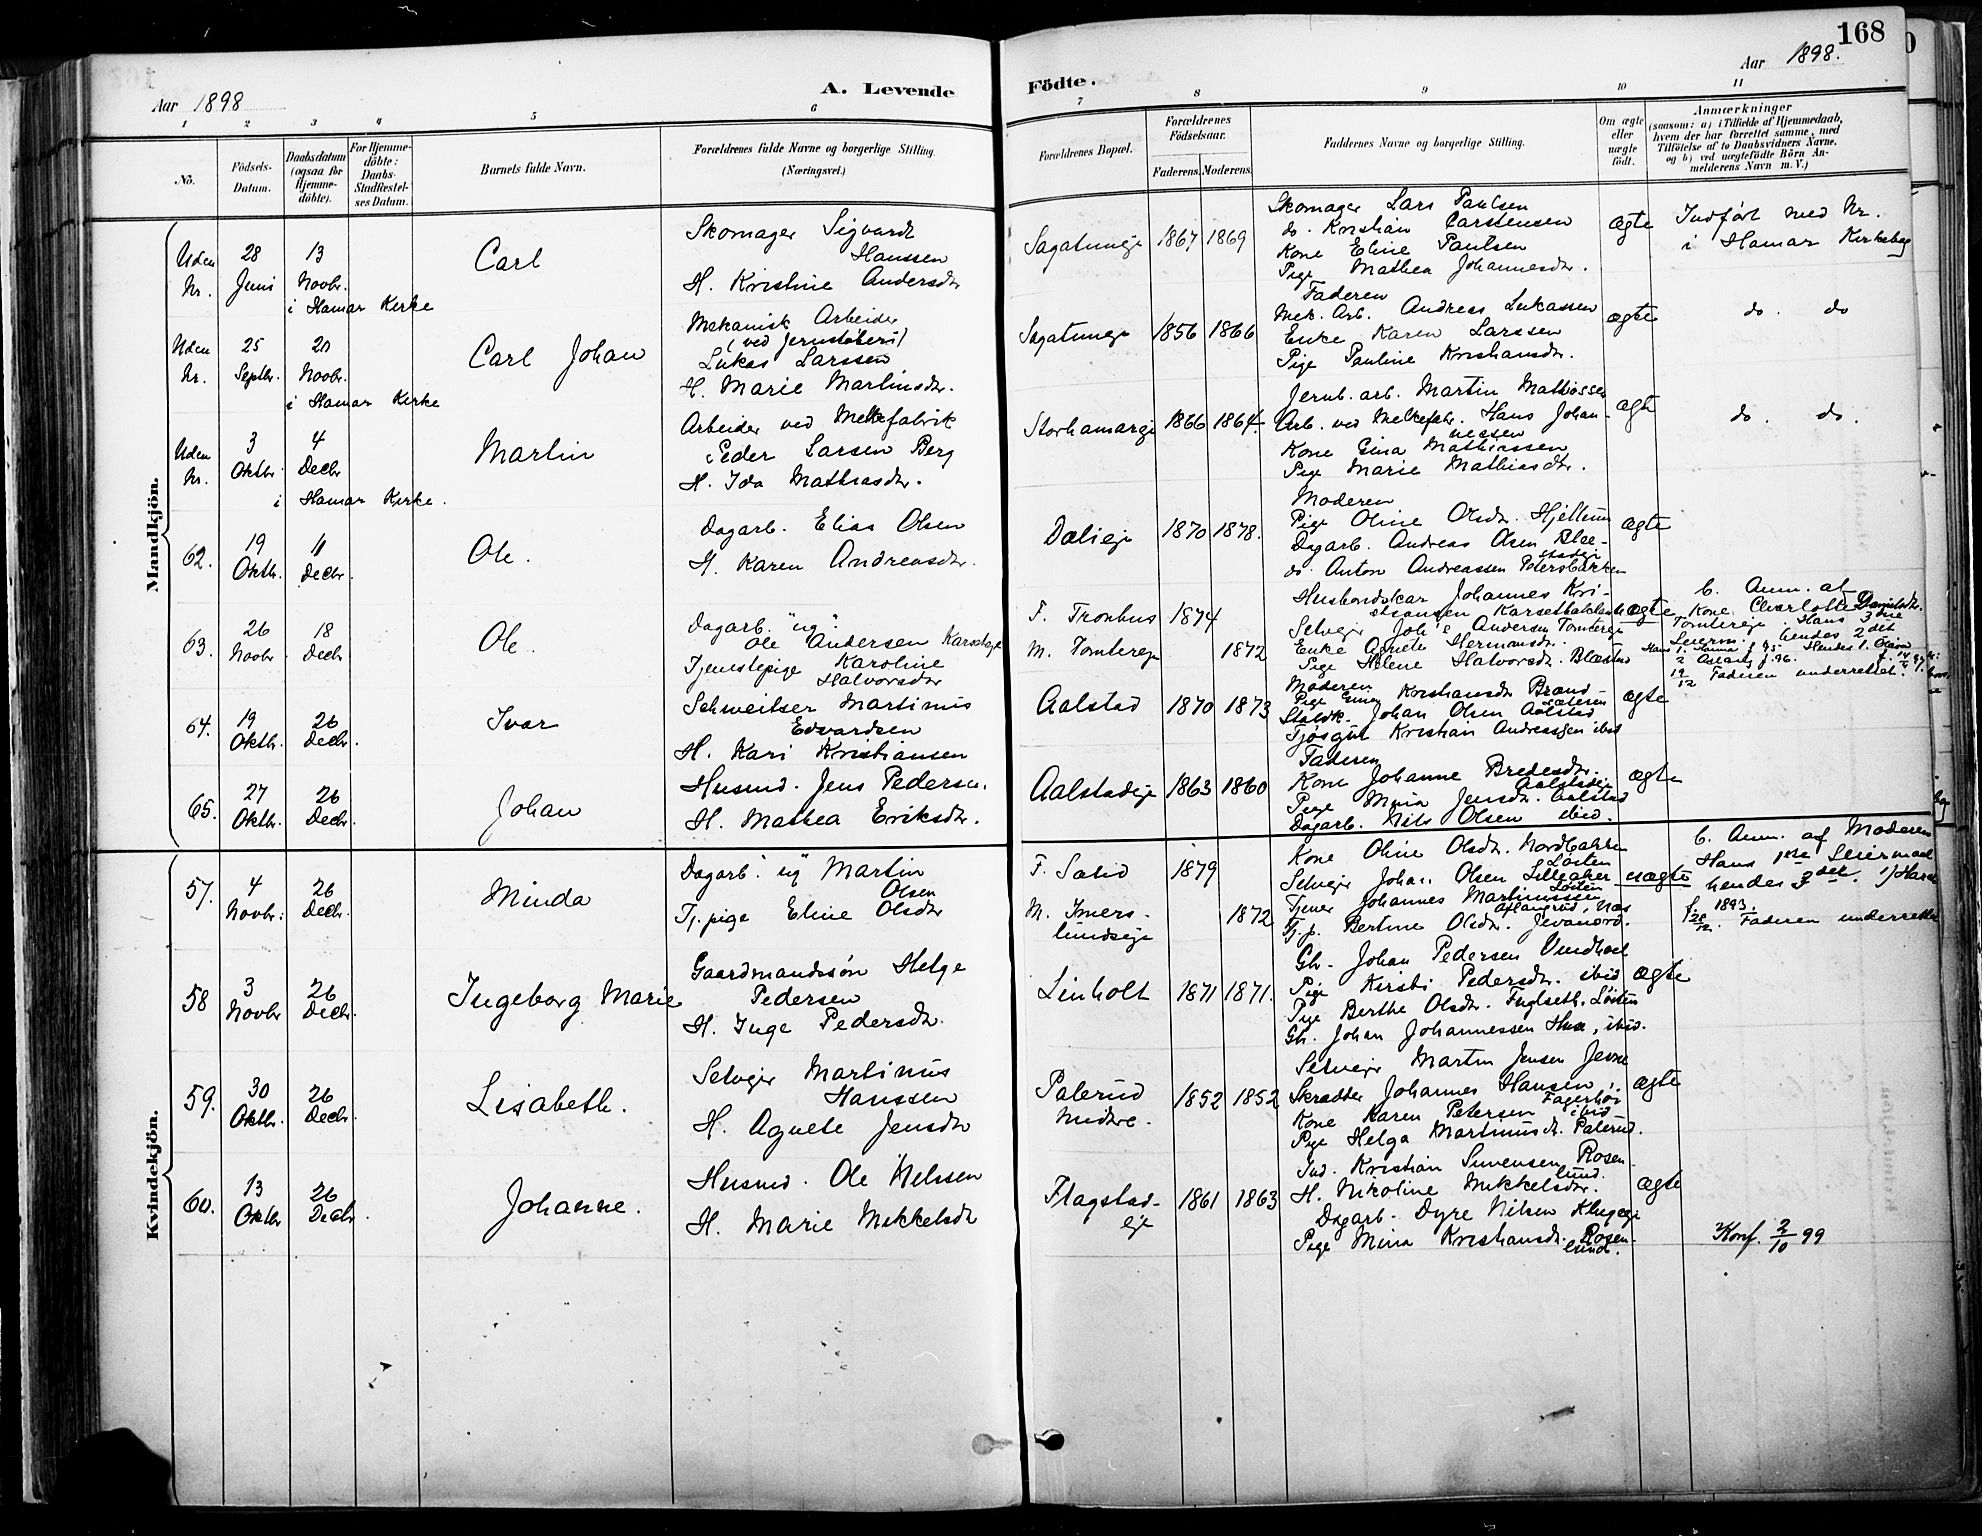 168
Aar 1898
A. Levende
Födte.
Aar 1898.
1 2 3 4 5 6 7 8 9 10 11
No.
Födsels-
Datum.
Daabsdatum
(ogsaa for
Hjemme-
döbte).
For Hjemme-
döbte:
Daabs-
Stadfæstel-
ses Datum.
Barnets fulde Navn.
Forældrenes fulde Navne og borgerlige Stilling.
(Næringsvei.)
Forældrenes Bopæl.
Forældrenes
Födselsaar.
Faderens. Moderens.
Faddernes Navne og borgerlige Stilling.
Om ægte
eller
uægte
födt.
Anmærkninger
(saasom: a) i Tilfælde af Hjemmedaab,
hvem der har forrettet samme, med
Tilföielse af to Daabsvidners Navne,
og b) ved uægtefödte Börn An-
melderens Navn m. V.)
Mandkjön.
Uden
Nr.
28
Juni
13
Novbr.
i Hamar Kirke
Carl
Skomager Sigvardt
Hanssen
H. Kristine Andersdtr
Sagatuneje
1867
1869
Skomager Lars Paulsen
do. Kristian Carstensen
Kone Eline Paulsen
Pige Mathea Johannesdtr.
ægte
Indført med Nr.
i Hamar Kirkebog
Uden
Nr.
25
Septbr.
20
Novbr.
i Hamar Kirke
Carl Johan
Mekanisk Arbeider
(ved Jernstøberi)
Lukas Larssen
H. Marie Martinsdtr.
Sagatuneje
1856
1866
Faderen
Mek. Arb. Andreas Lukassen
Enke Karen Larssen
Pige Pauline Kristiansdtr.
ægte
do. do
Uden
Nr.
3
Oktbr.
4
Decbr
i Hamar Kirke.
Martin
Arbeider ved Melkefabrik
Peder Larsen Berg
H. Ida Mathiasdtr.
Storhamareje
1866
1864.
Jernb. arb. Martin Mathiassen
Arb. ved Melkefabr. Hans Johan-
nessen
Kone Gina Mathiassen
Pige Marie Mathiasdtr.
ægte
do. do.
62.
19
Oktbr.
11
Decbr.
Ole.
Dagarb. Elias Olsen
H. Karen Andreasdtr.
Dalieje
1870
1878.
Moderen
Pige Oline Olsdtr. Hjellum
Dagarb. Andreas Olsen Blæ-
stadeje
do. Anton Andreassen Petersbakken
ægte
63.
26
Novbr.
18
Decbr
Ole.
Dagarb. "ug".
Ole Andersen
Tjenestepige Karoline
Halvorsdtr
F. Tronhus
M. Tomtereje
1874
1872
Husbondskar Johannes Kri-
stiansen
Selveier Joh's Andersen Tomtereje
Enke Agnete Hermansdtr.
Pige Helene Halvorsdtr. Blæstad
C. Anm. af
Kone Charlotte Danielsdtr.
Tomtereje. Hans 3die
Leierm. hendes 2det
19/12 Faderen underrettet.
64.
19
Oktbr.
26
Decbr.
Ivar
Schweitser Martinus
Edvardsen
H. Kari Kristiansen
Aalstad
1870
1873
Moderen
Staldk. Johan Olsen Aalstad
Fjøsgut Kristian Andreassen ibid
ægte
65.
27
Oktbr.
26
Decbr.
Johan
Husmd. Jens Pedersen.
H. Mathea Eriksdtr.
Aalstadeje
1863
1860
Faderen
Kone Johanne Bredesdtr.
Aalstadeje
Pige Mina Jensdtr. Aalstad
Dagarb. Nils Olsen ibid.
ægte
Kvindekjön.
57.
4
Novbr.
26
Decbr.
Minda
Dagarb. "ug" Martin
Olsen
Tj. pige Eline Olsdtr
F. Salid
M. Imers-
lundseje
1879
1872
Kone Oline Olsdtr. Nordbakke
Løiten
Selveier Johan Olsen Lilleaker
Løiten
Tjener Johannes Martinussen
Tj. p. Bertine Olsdtr. Jevanord.
uægte
C. Anm. af Moderen
Hans 1ste Leiermaal
hendes 2det.
f. 1893.
Faderen underrettet
58
3
Novbr
26
Decbr.
Ingeborg Marie
Gaardmandssøn Helge
Pedersen
H. Inge Pedersdtr.
Linholt
1871
1871.
Gbr. Johan Pedersen
Pige Kirsti Pedersdtr. ibid
Pige Berthe Olsdtr. Fuglseth. Løiten
Gbr. Johan Johannessen Hus, ibid.
ægte
59.
30
Oktbr.
26
Decbr.
Lisabeth.
Selveier Martinus
Hanssen
H. Agnete Jensdtr
Palerud
nedre.
1852
1852
Selveier Martin Jensen Jevne
Skrædder Johannes Hansen,
Fagerhøi
Kone Karen Petersen ibid
Pige Helga Martinusdtr. Palerud.
ægte
60.
13
Oktbr
26
Decbr.
Johanne.
Husmd. Ole Nielssen
H. Marie Mikkelsdtr
Flagstad-
eje
1861
1863
Ind. Kristian Svensen Rosen-
lund.
H. Nikoline Mikkelsdtr.
Dagarb. Dyre Nilsen
Pige Mina Kristiansdtr. Rosen-
lund.
ægte
Konf. 2/10 99